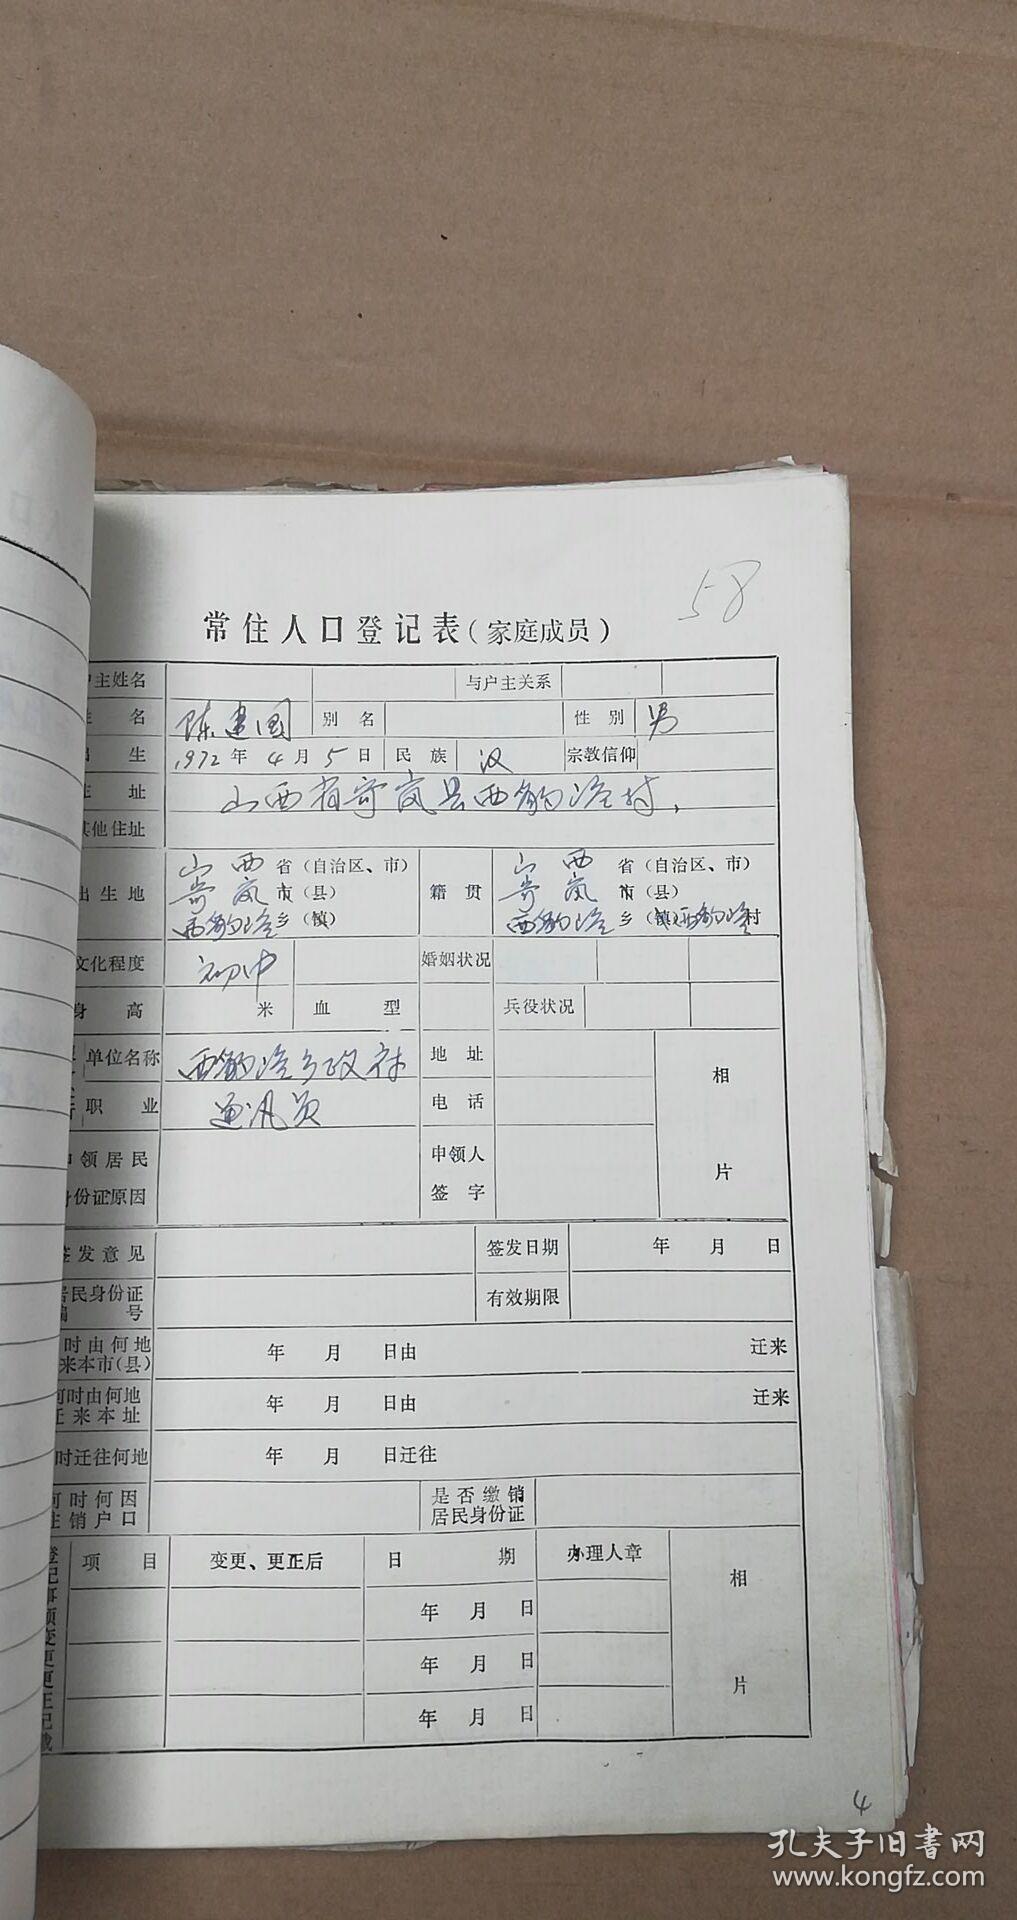 58
常住人口登记表(家庭成员)
主姓名 与户主关系
名 陈建国 别名 性别 男
生 1972年4月5日 民族 汉 宗教信仰
址 山西省岢岚县西豹峪村
其他住址
出生地 山西省(自治区、市) 籍贯 山西省(自治区、市)
岢岚市(县) 岢岚市(县)
西豹峪乡(镇) 西豹峪乡(镇)西豹峪村
文化程度 初中 婚姻状况
身高 米 血型 兵役状况
单位名称 西豹峪乡政府 地址 相
职业 通讯员 电话
申领居民 申领人 片
身份证原因 签字
签发意见 签发日期 年 月 日
居民身份证 有效期限
编号
时由何地 年 月 日由 迁来
来本市(县)
何时由何地 年 月 日由 迁来
迁来本址
时迁往何地 年 月 日迁往
何时何因 是否缴销
注销户口 居民身份证
登记事项变更更正记载 项目 变更、更正后 日期 办理人章 相
年 月 日
年 月 日 片
年 月 日
4
孔夫子旧书网
www.kongfz.com